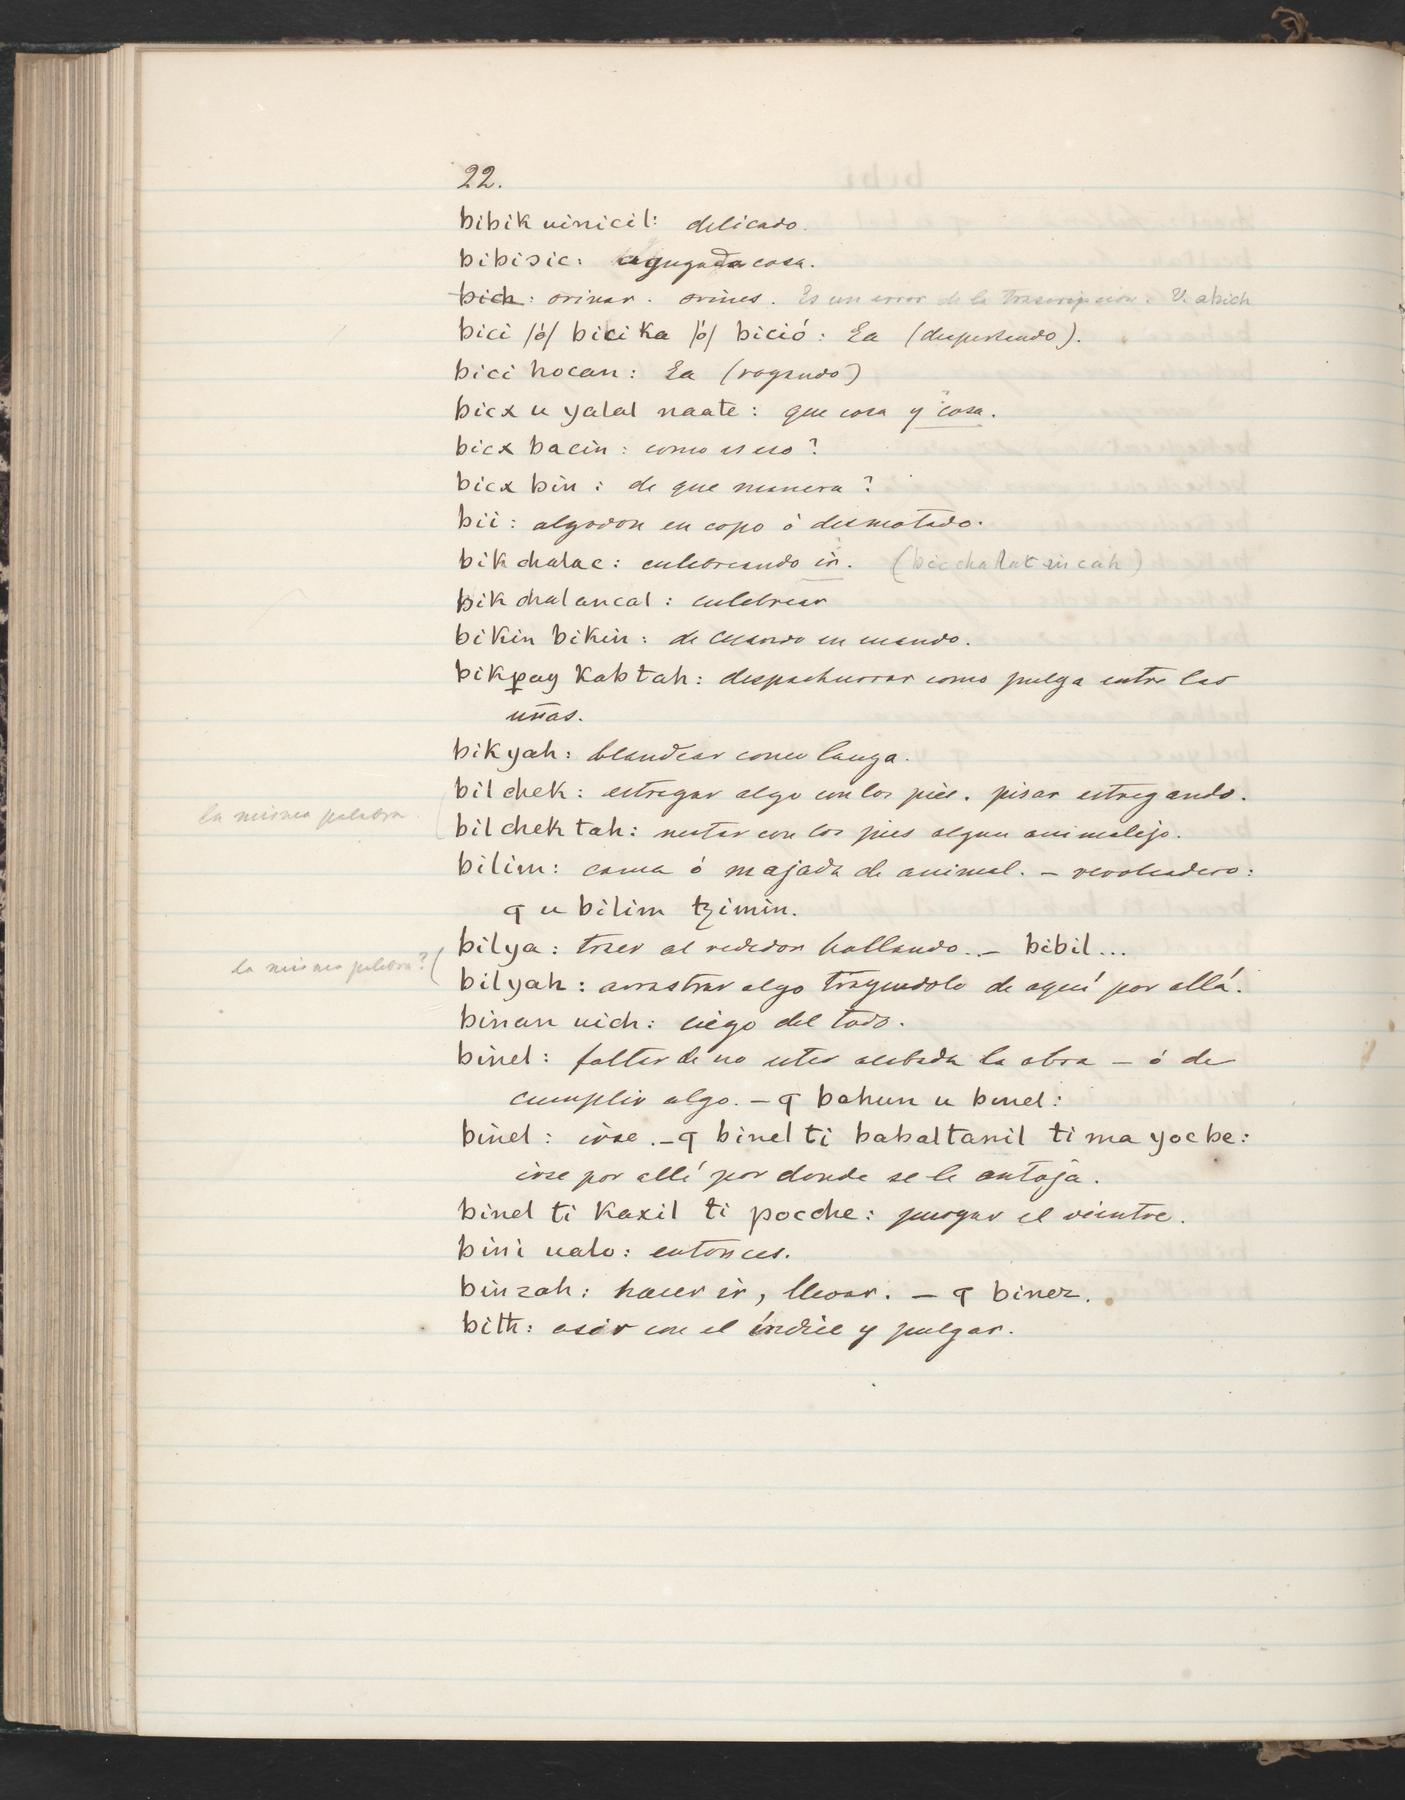 22.
bibik uinicil: delicado.
bibisic: agugada cosa.
bich: orinar. orines. Es un error de la trascripcion. V. abich
bici /ó/ bicika /ó/ bició: Ea (despertando).
bici hocan: Ea (rogando)
bicx u yalal naate: que cosa y cosa.
bicx bacin: como es eso?
bicx bin: de que manera?
bii: algodon en copo ó desmotado.
bik chalac: culebreando ir. (bicchalat in cah)
bik chalancal: culebrear
bikin bikin: de cuando en cuando.
bikꝑay kabtah: despachurrar como pulga entre las
uñas.
bikyah: blandear como lanza.
bilchek: estregar algo con los piés. pisar estregando.
la misma palabra
bilchektah: matar con los pies algun animalejo.
bilim: cama ó majada de animal. – revolcadero:
q u bilim tzimin.
bilya: traer al rededor hallando. – bibil...
la misma palabra? (
bilyah: arrastrar algo trayendolo de aquí por allá.
binan uich: ciego del todo.
binel: faltar de no estar acabada la obra – ó de
cumplir algo. – q bahun u binel:
binel: irse. – q binel ti babaltanil ti ma yocbe:
irse por allí por donde se le antoja.
binel ti kaxil ti pocche: purgar el vientre.
bini ualo: entonces.
binzah: hacer ir, llevar. – q binez.
bitħ: asir con el índice y pulgar.